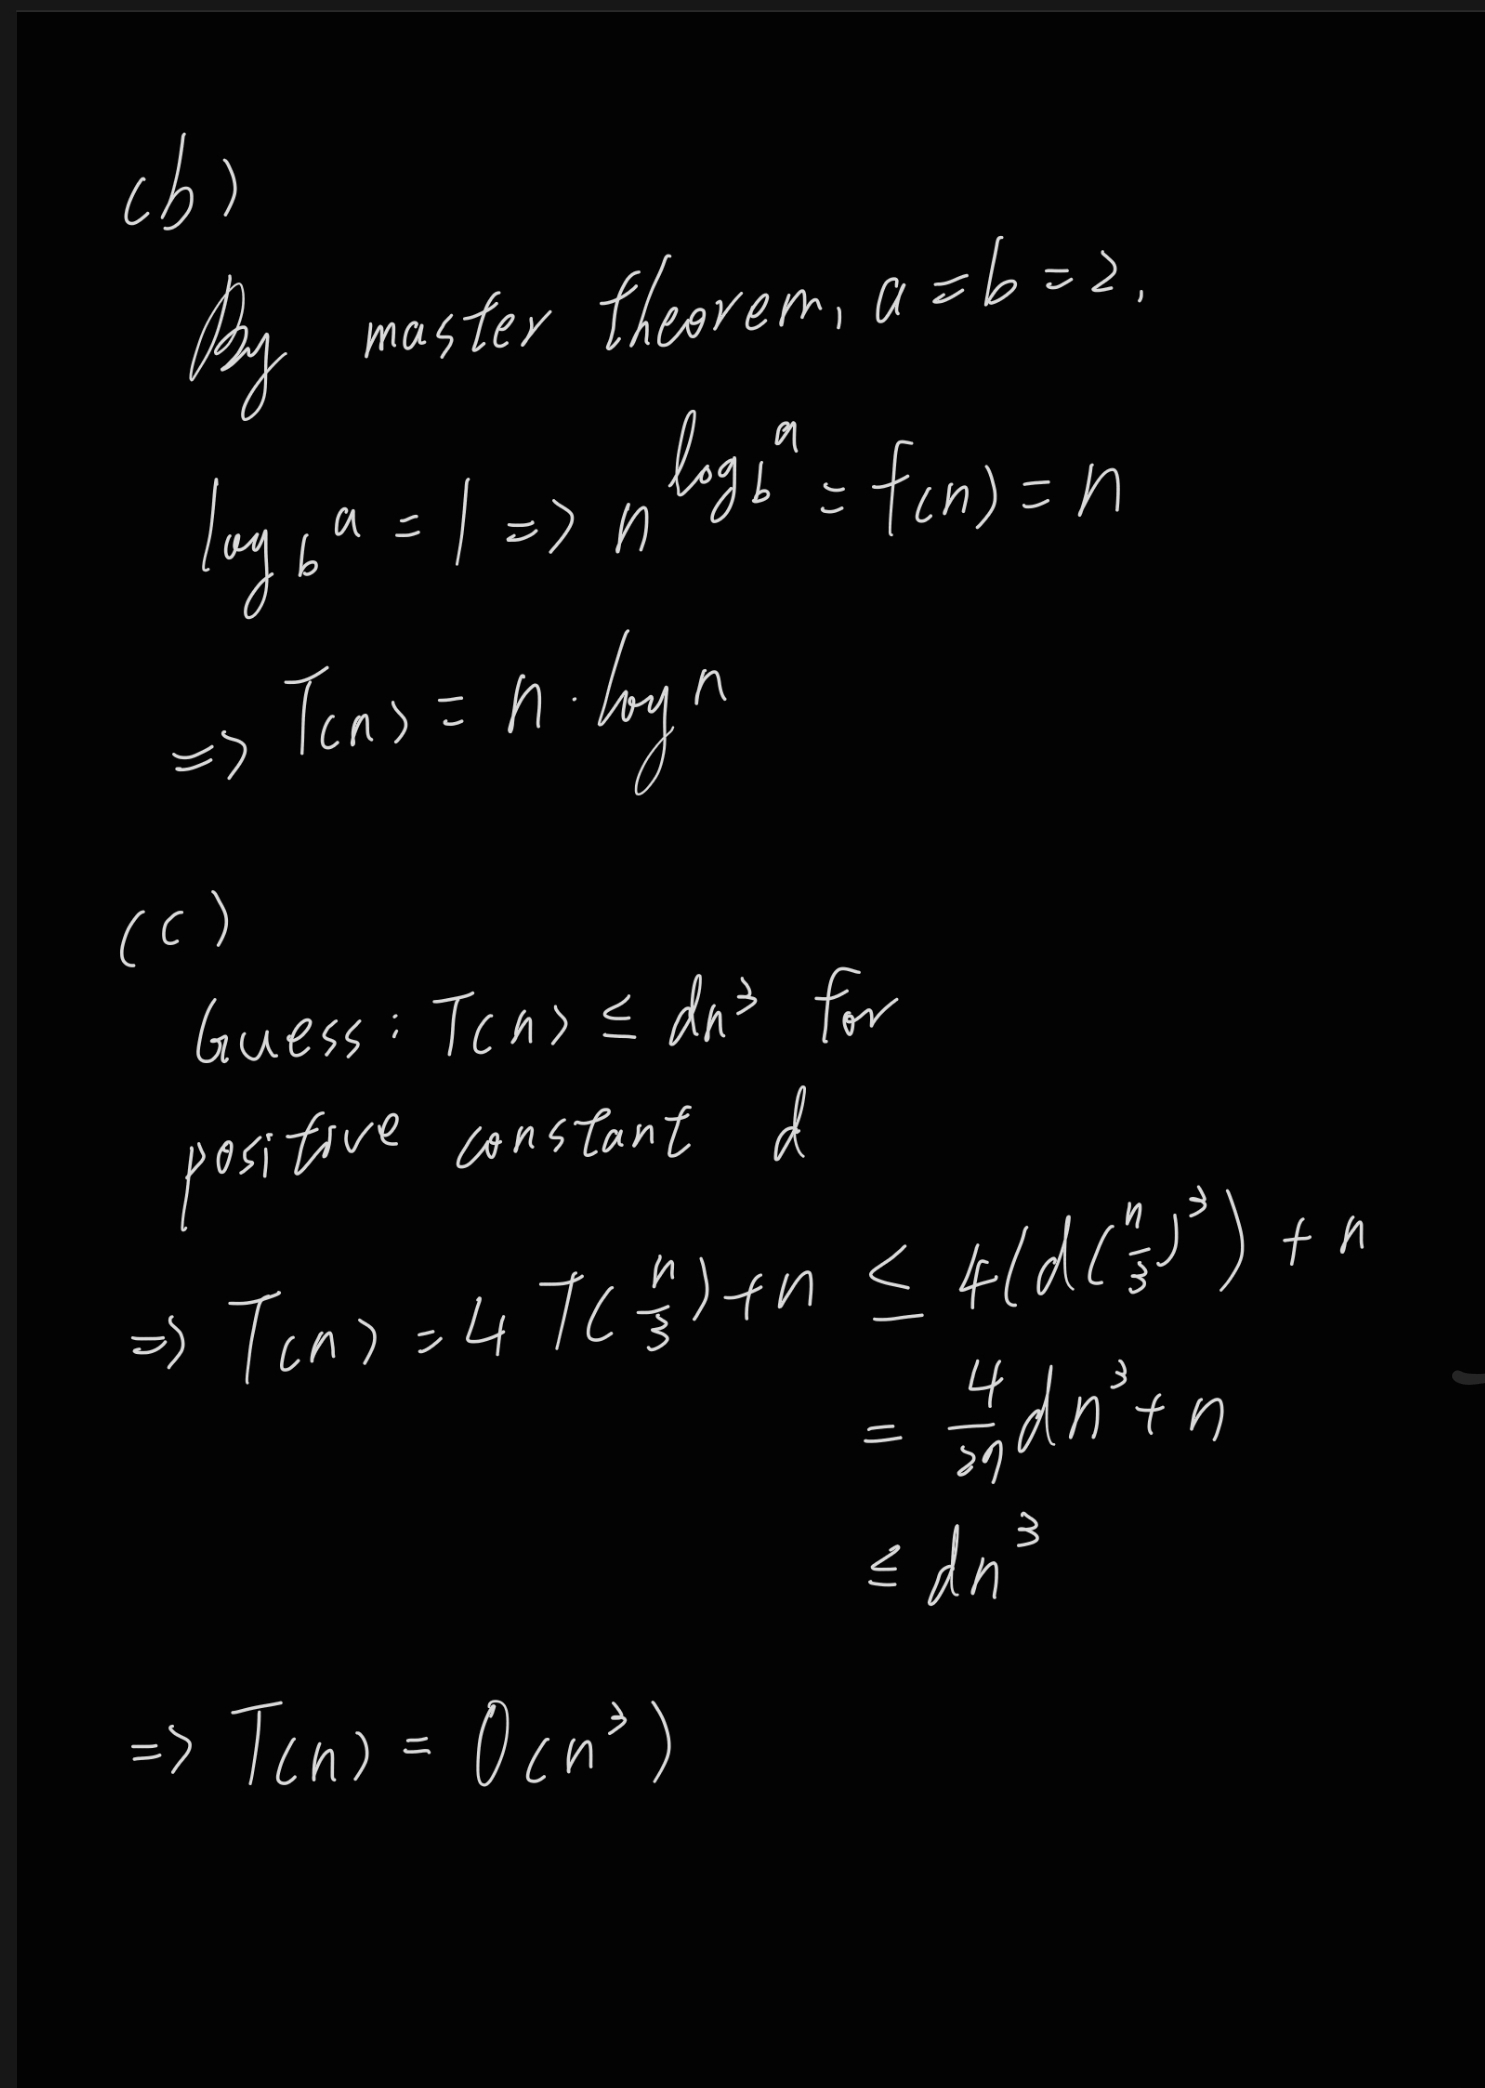 (b)
By master theorem, a = b = 2,
log_b a = 1 => n^{log_b a} = f(n) = n
=> T(n) = n · log n
(c)
Guess: T(n) ≤ dn³ for
positive constant d
=> T(n) = 4 T(n/3) + n ≤ 4(d(n/3)³) + n
= 4/27 dn³ + n
≤ dn³
=> T(n) = O(n³)